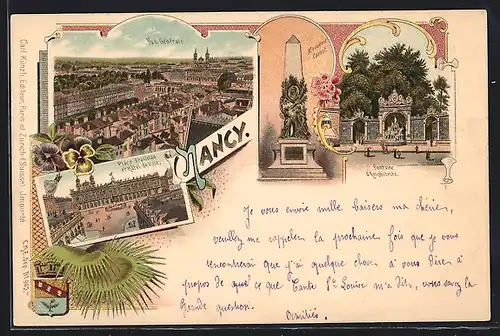 Vue Générale
Monument
Carnot
Place Stanislas
et Hôtel de Ville.
NANCY.
Fontaine
d'Amphitrite.
Carl Künzli, Editeur, Paris et Zurich (Suisse). Imprimé
Je vous envoie mille baisers ma chérie,
veuillez me rappeler la prochaine fois que je vous
rencontrerai que j'ai quelque chose à vous dire à
propos de que ce que Tante St Louise m'a dit, vous savez la
Grande question.
Amitiés.